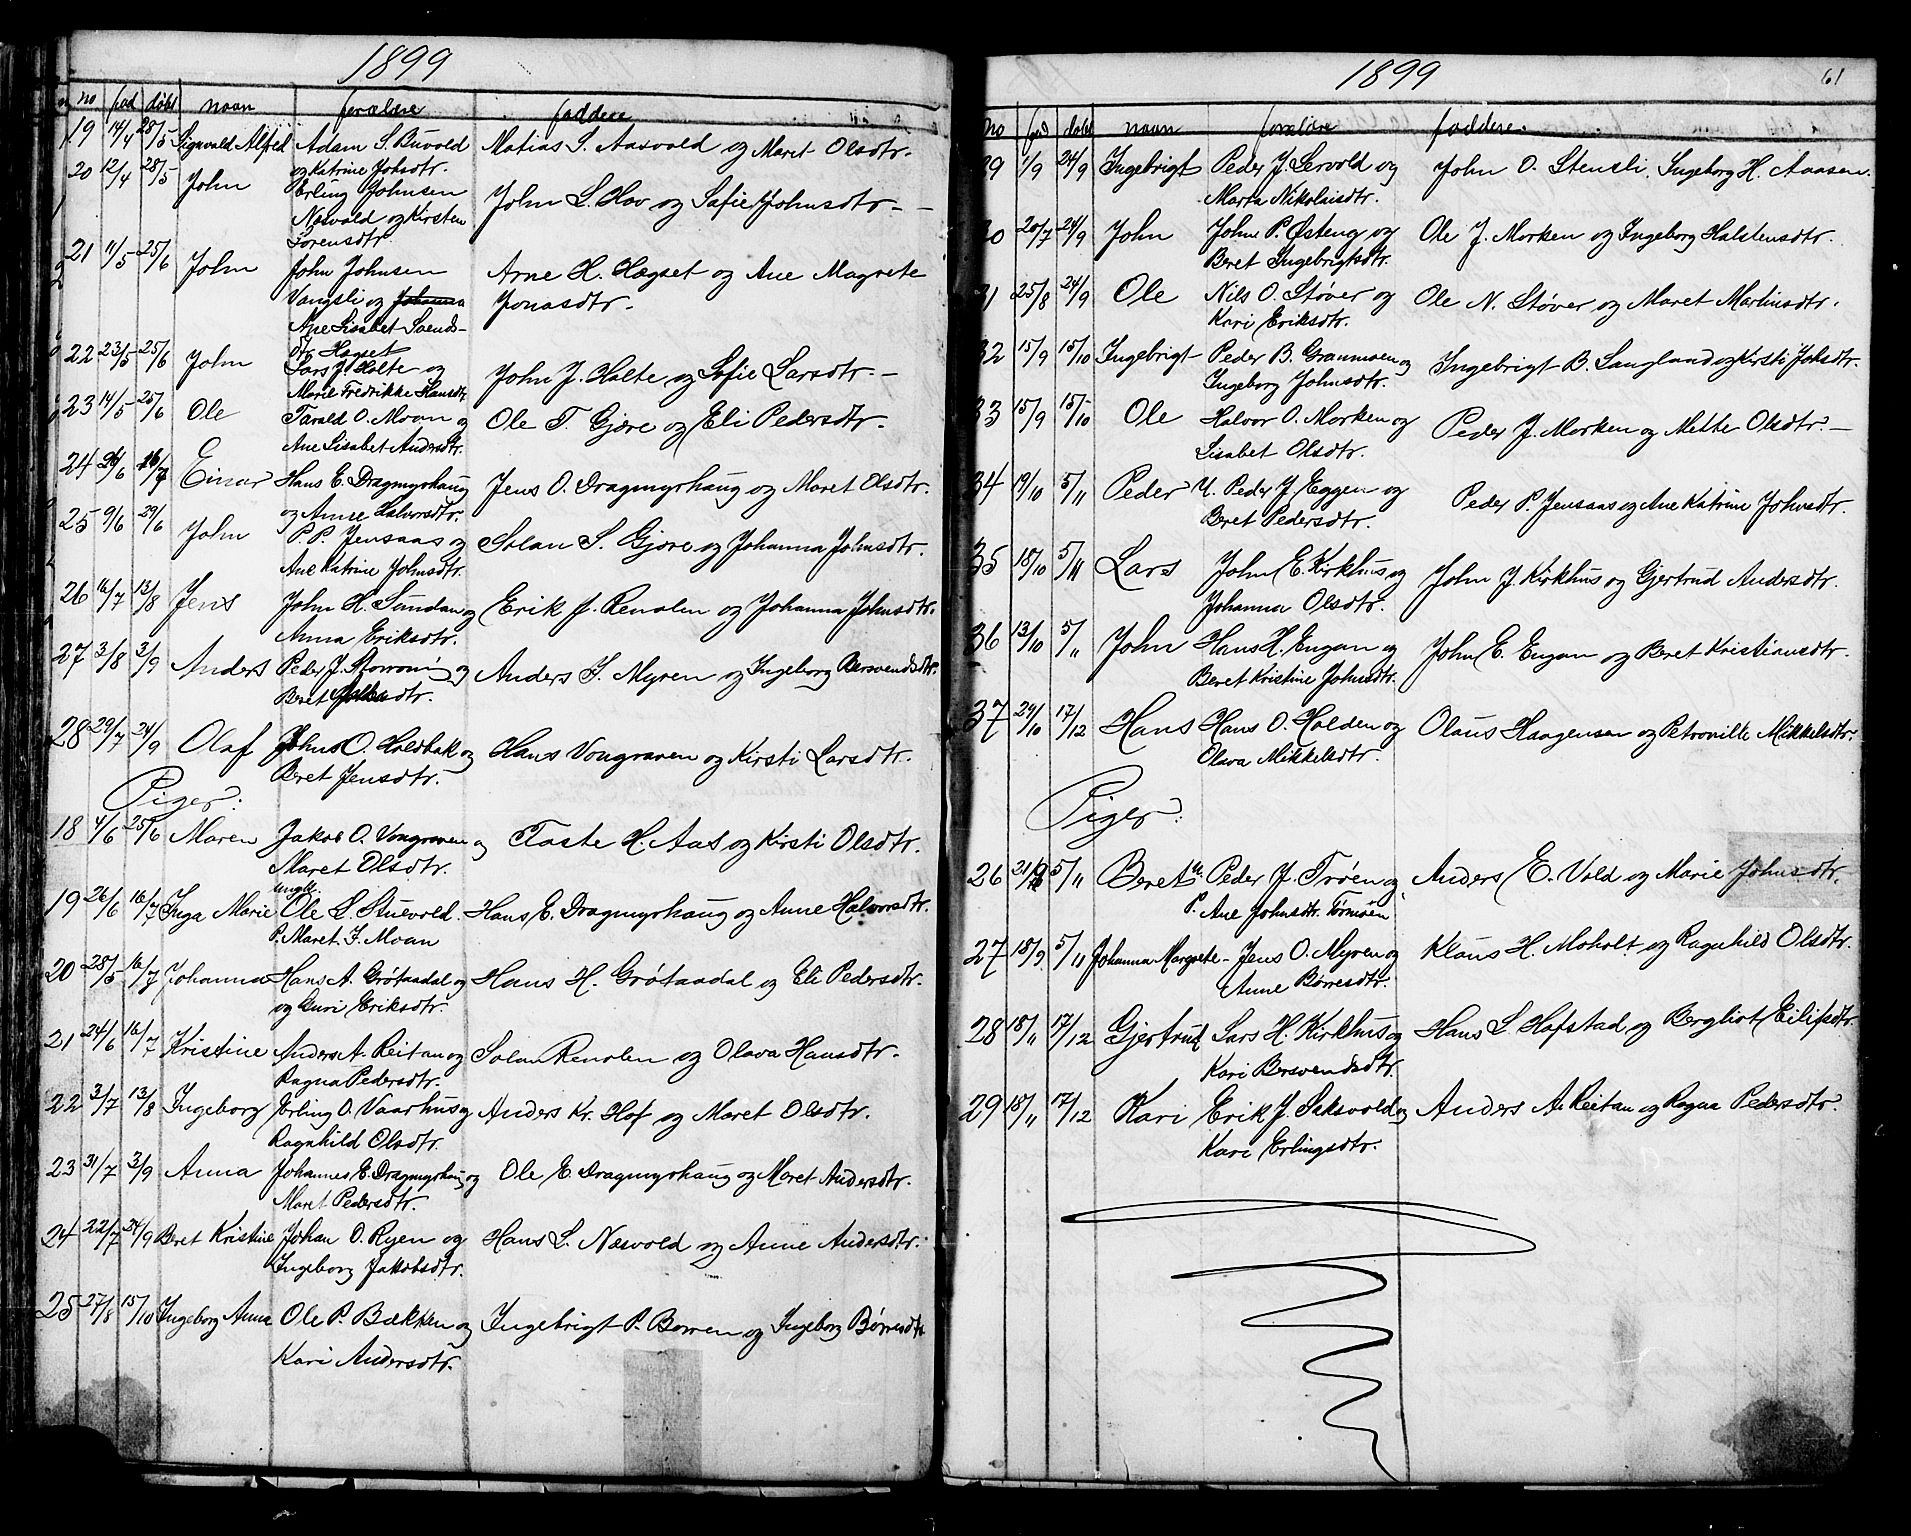 1899
no fød døbt navn forældre faddere
19 14/4 28/5 Sigvald Alfred Adam S. Buvold Matias S. Aasvold og Maret Olsdtr.
og Katrine Johsdtr.
20 12/4 28/5 John Erling Johnsen John L. Hov og Sofie Johnsdtr
Næsvold og Kirsten
Sørensdtr
21 11/5 25/6 John John Johnsen Arne H. Hægset og Ane Magrete
Vangsli og Johanna Jonasdtr.
Ane Lisabet Svends-
dtr Hægset
22 23/5 25/6 John Lars J. Holte og John J. Holte og Sofie Larsdtr.
Marie Fredrikke Hansdtr
23 14/5 25/6 Ole Tarald O. Moan og Ole T. Gjære og Eli Pedersdtr.
Ane Lisabet Andersdtr.
24 24/6 16/7 Einar Hans E. Dragmyrhaug Jens O. Dragmyrhaug og Maret Olsdtr.
og Anne Halvorsdtr.
25 9/6 29/6 John P. P. Jensaas og Solan S. Gjøre og Johanna Johnsdtr.
Ane Katrine Johnsdtr.
26 16/7 13/8 Jens John H. Sundan og Erik J. Renolen og Johanna Johnsdtr.
Anna Eriksdtr.
27 3/8 3/9 Anders Peder J. Storrøning og Anders J. Myren og Ingeborg Bersvendsdtr.
Beret dtr.
28 29/7 24/9 Olaf Johns O. Holdbak og Hans Vongraven og Kirsti Larsdtr.
Beret Jensdtr.
Piger:
18 4/6 25/6 Maren Jakob O. Vongraven og Toste H. Aas og Kirsti Olsdtr.
Maret Olsdtr.
19 26/6 16/7 Inga Marie ungk. Ole L. Stuevold. Hans E. Dragmyrhaug og Anne Halvorsdtr.
P. Maret J. Moan
20 28/5 16/7 Johanna Hans A. Grøtaadal og Hans H. Grøtaadal og Eli Pedersdtr.
og Guri Eriksdtr.
21 24/6 16/7 Kristine Anders A. Reitan og Solan Renolen og Olava Hansdtr.
Ragna Pedersdtr.
22 3/7 13/8 Ingeborg Erling O. Vaarhus og Anders Kr. Hof og Maret Olsdtr.
Ragnhild Olsdtr.
23 31/7 3/9 Anna Johannes E. Dragmyrhaug og Ole E. Dragmyrhaug og Maret Andersdtr.
Maret Pedersdtr.
24 22/7 24/9 Beret Kristine Johan O. Ryen og Hans L. Næsvold og Anne Andersdtr.
Ingeborg Jakobsdtr.
25 27/8 15/10 Ingeborg Anna Ole P. Bækken og Ingebrigt P. Borren og Ingeborg Børresdtr
Kari Andersdtr.
1899 61
no fød døbt navn forældre faddere.
29 1/9 24/9 Ingebrigt Peder J. Lervold og John O. Stensli, Ingeborg H. Aaasen.
Marta Nikolaisdtr.
30 20/7 24/9 John John P. Østeng og Ole J. Morken og Ingeborg Halstensdtr.
Beret Ingebrigtsdtr.
31 25/8 24/9 Ole Nils O. Støver og Ole N. Støver og Maret Martinsdtr.
Kari Eriksdtr.
32 15/9 15/10 Ingebrigt Peder B. Granmoen og Ingebrigt B. Langland og Kirsti Johsdtr.
Ingeborg Johnsdtr.
33 15/9 15/10 Ole Halvor O. Morken og Peder J. Morken og Mette Olsdtr.
Lisabet Olsdtr.
34 19/10 5/11 Peder U. Peder J. Eggen og Peder P. Jensaas og Ane Katrine Johnsdtr.
Beret Pedersdtr.
35 18/10 5/11 Lars John E. Kirkhus og John J. Kirkhus og Gjertrud Andersdtr.
Johanna Olsdtr.
36 13/10 5/11 John Hans H. Engan og John E. Engan og Beret Kristiansdtr.
Beret Kristine Johnsdtr.
37 24/10 17/12 Hans Hans O. Holden og Olaus Haagensen og Petronille Mikkelsdtr.
Olava Mikkelsdtr.
Piger:
26 21/9 5/11 Beret U. Peder J. Trøen og Anders E. Vold og Marie Johnsdtr.
P. Ane Johnsdtr. Tørmoen
27 18/9 5/11 Johanna Margrete Jens O. Myren og Klaus H. Moholt og Ragnhild Olsdtr.
Anne Børresdtr.
28 18/11 17/12 Gjertrud Lars H. Kirkhus og Hans L. Hofstad og Bergliot Eilifsdtr.
Kari Bersvendsdtr.
29 18/11 17/12 Kari Erik J. Saksvold og Anders A. Reitan og Ragna Pedersdtr.
Kari Erlingsdtr.